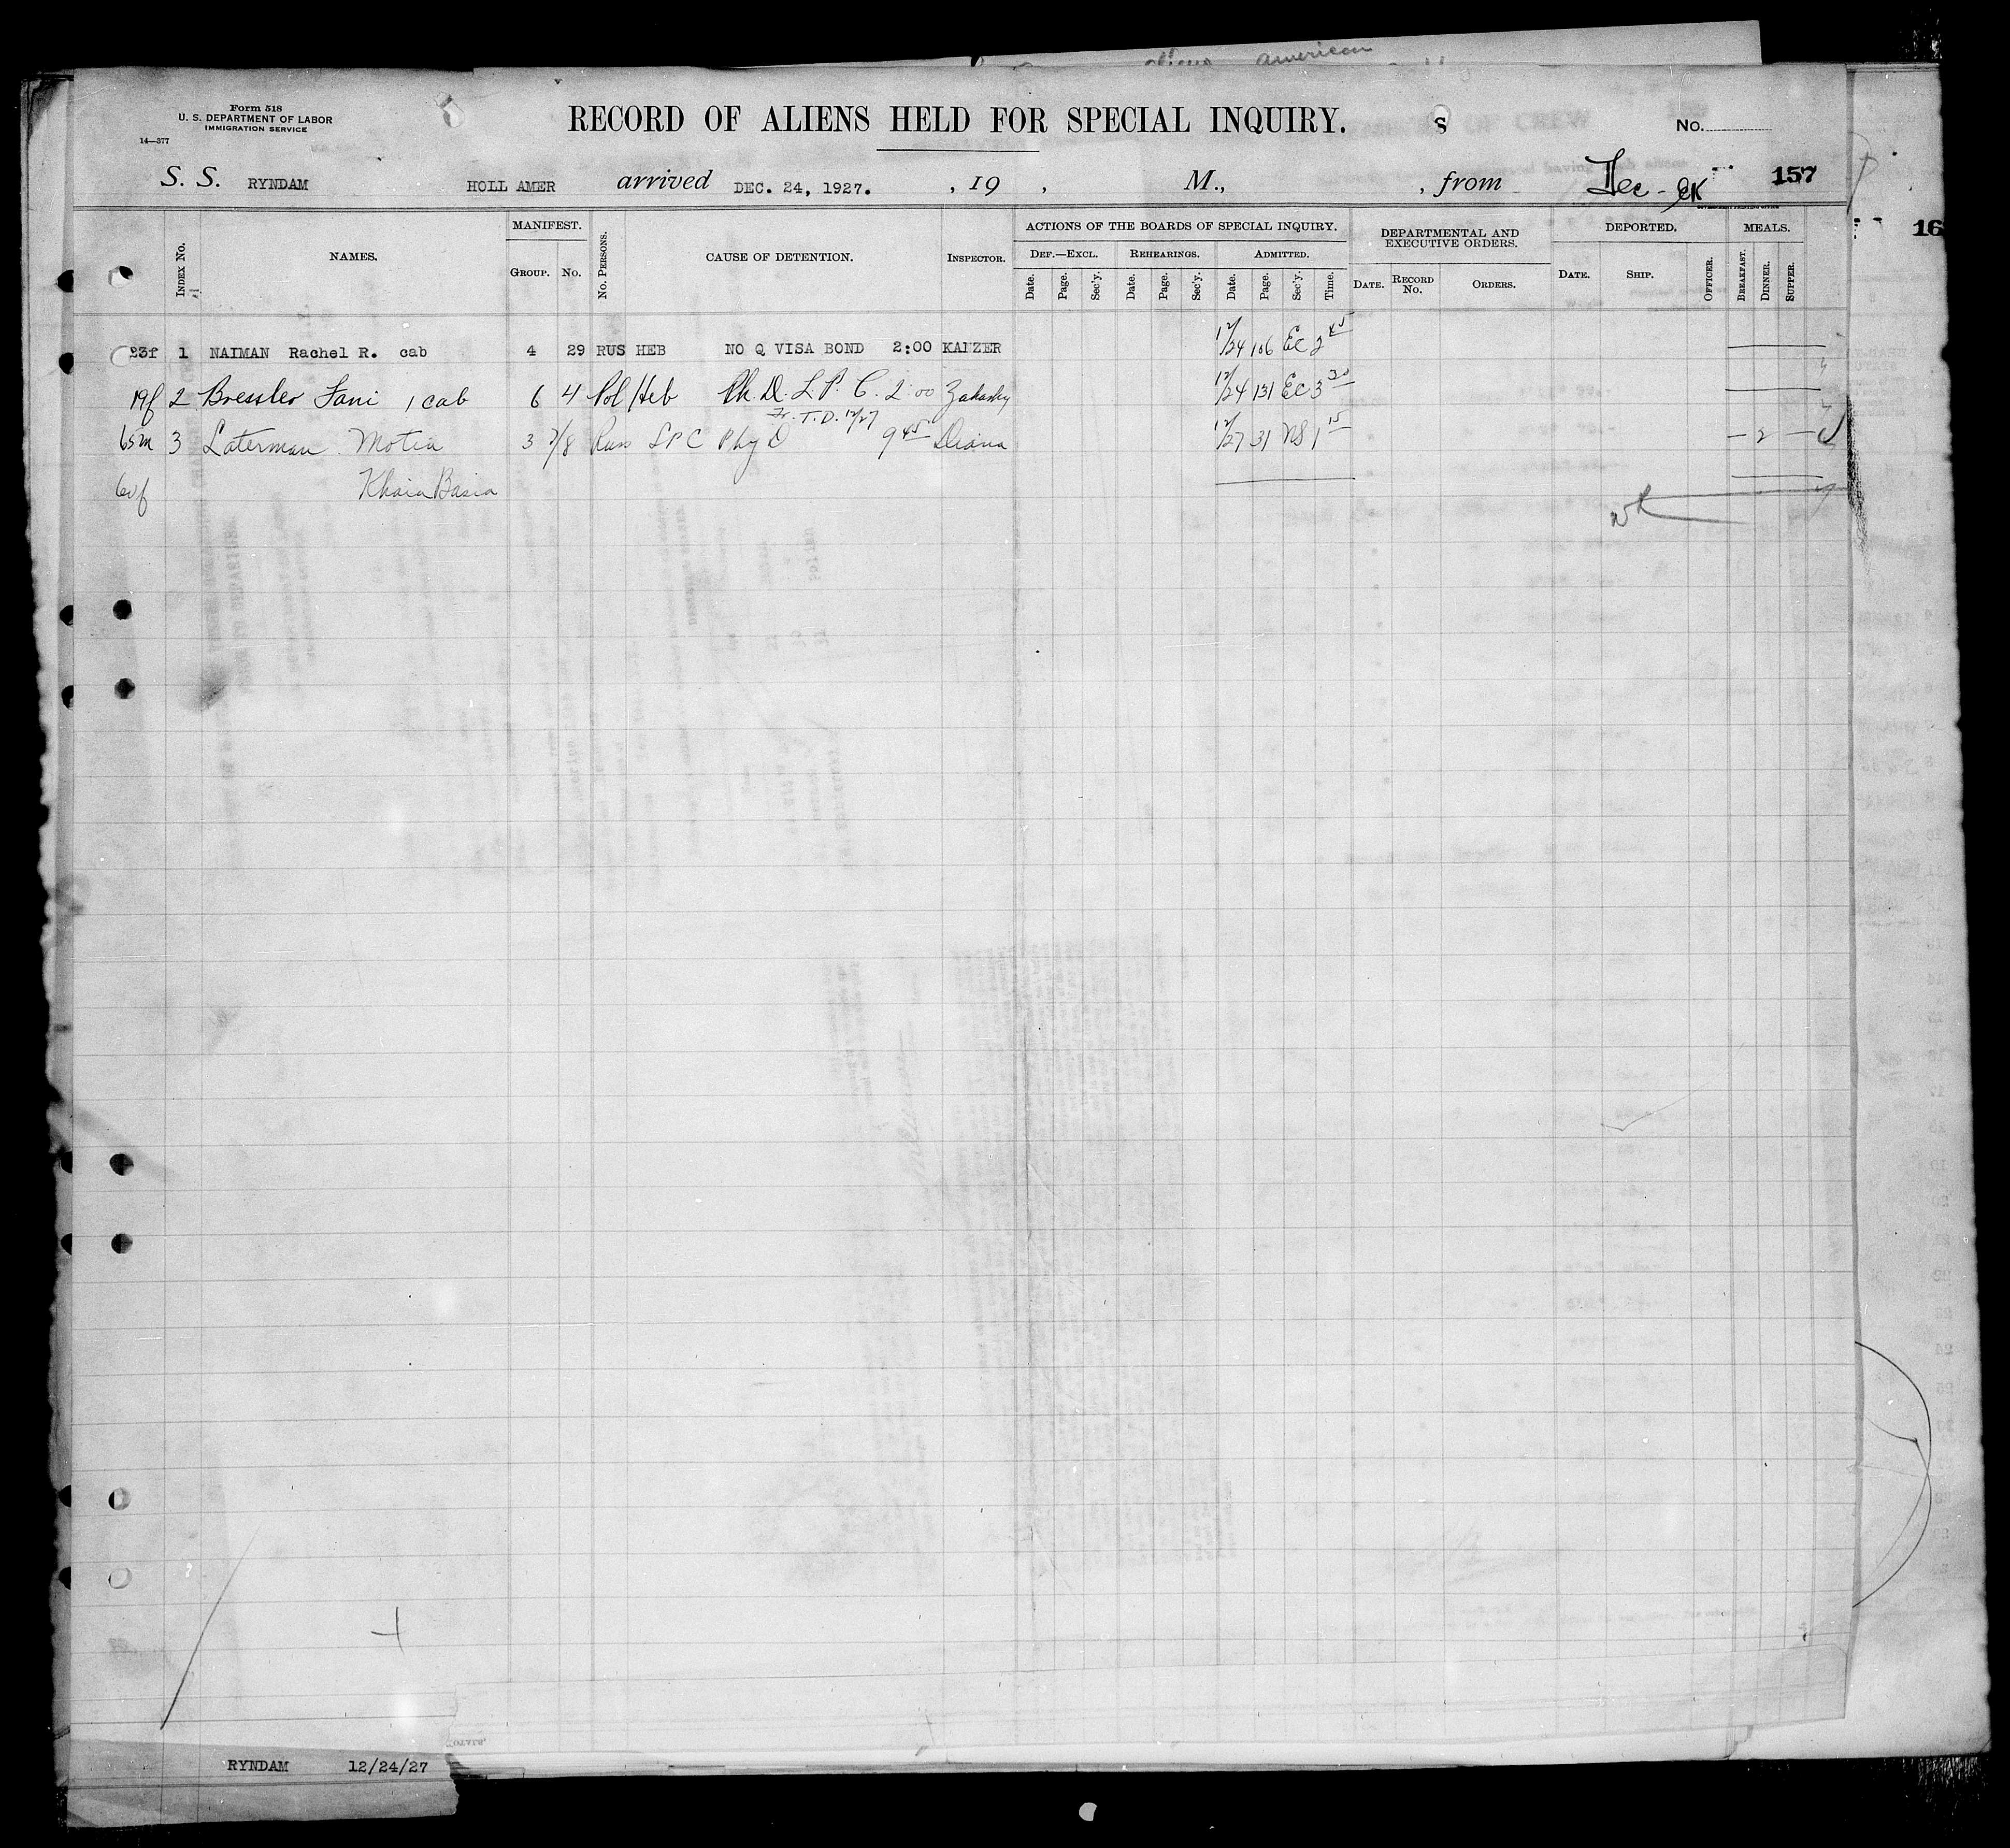 american
Form 518
U. S. DEPARTMENT OF LABOR
IMMIGRATION SERVICE
14—377
RECORD OF ALIENS HELD FOR SPECIAL INQUIRY. S No.
S. S. RYNDAM HOLL AMER arrived DEC. 24, 1927. , 19 , M., , from 157
16
INDEX NO. NAMES. MANIFEST. GROUP. NO. NO. PERSONS. CAUSE OF DETENTION. INSPECTOR. ACTIONS OF THE BOARDS OF SPECIAL INQUIRY. DEF.—EXCL. Date. Page. Sec'y. REHEARINGS. Date. Page. Sec'y. ADMITTED. Date. Page. Sec'y. Time. DEPARTMENTAL AND EXECUTIVE ORDERS. DATE. RECORD NO. ORDERS. DEPORTED. DATE. SHIP. OFFICER. MEALS. BREAKFAST. DINNER. SUPPER.
23f 1 NAIMAN Rachel R. cab 4 29 RUS HEB NO Q VISA BOND 2:00 KANZER 12/24 106 EC 2 45
19f 2 Bressler Fani 1 cab 6 4 Pol Heb Ph. D. L. P. C. 2:00 Zakasky 12/24 131 EC 3 30
Fr. T. D. 12/27
65m 3 Laterman Motia 3 7/8 Russ L P C Phy D 9 45 Diana 12/27 31 NS 1 15 — 2 —
60f Khaia Basia
RYNDAM 12/24/27